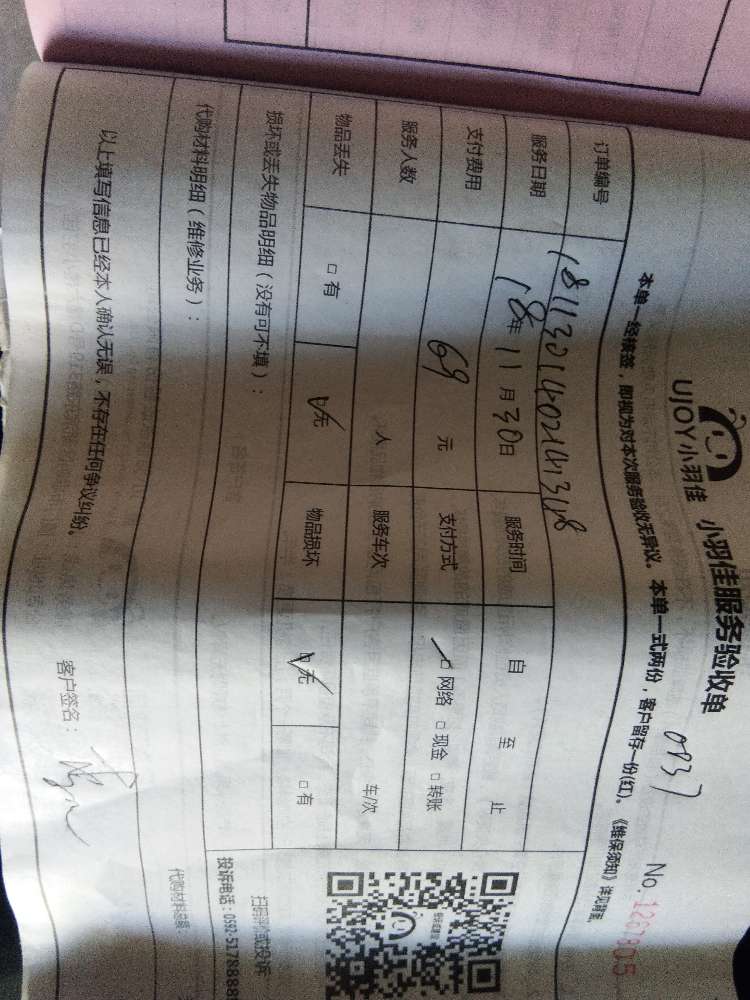 UJOY小羽佳 小羽佳服务验收单
0837
No. 1267805
本单一经核签，即视为对本次服务验收无异议。本单一式两份，客户留存一份(红)。《维保须知》详见背面。
订单编号 18113014021413148
服务日期 18年 11月 30日 服务时间 自 至 止
支付费用 69 元 支付方式 ☑网络 □现金 □转账
服务人数 人 服务车次 车/次
物品丢失 □有 ☑无 物品损坏 ☑无 □有
损坏或丢失物品明细（没有可不填）：
扫码评价或投诉
投诉电话：0592-5178888
代购材料明细（维修业务）：
代购材料总额：
以上填写信息已经本人确认无误，不存在任何争议纠纷。
客户签名：